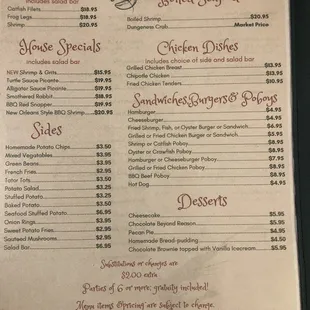 includes salad bar
Catfish Filets $18.95
Frog Legs $18.95
Shrimp $20.95
House Specials
includes salad bar
NEW Shrimp & Grits $15.95
Turtle Sauce Picante $19.95
Alligator Sauce Picante $19.95
Smothered Rabbit $18.95
BBQ Red Snapper $19.95
New Orleans Style BBQ Shrimp $20.95
Sides
Homemade Potato Chips $3.50
Mixed Vegetables $3.95
Green Beans $3.95
French Fries $2.95
Tator Tots $3.50
Potato Salad $3.25
Stuffed Potato $3.25
Baked Potato $3.50
Seafood Stuffed Potato $6.95
Onion Rings $3.95
Sweet Potato Fries $2.95
Sauteed Mushrooms $2.95
Salad Bar $6.95
Boiled
Boiled Shrimp $20.95
Dungeness Crab Market Price
Chicken Dishes
includes choice of side and salad bar
Grilled Chicken Breast $13.95
Chipotle Chicken $13.95
Fried Chicken Tenders $10.95
Sandwiches, Burgers & Poboys
Hamburger $4.95
Cheeseburger $4.95
Fried Shrimp, Fish, or Oyster Burger or Sandwich $6.95
Grilled or Fried Chicken Burger or Sandwich $3.95
Shrimp or Catfish Poboy $8.95
Oyster or Crawfish Poboy $8.95
Hamburger or Cheeseburger Poboy $7.95
Grilled or Fried Chicken Poboy $8.95
BBQ Beef Poboy $8.95
Hot Dog $4.95
Desserts
Cheesecake $5.95
Chocolate Beyond Reason $5.95
Pecan Pie $4.95
Homemade Bread-pudding $4.50
Chocolate Brownie topped with Vanilla Icecream $5.95
Substitutions or changes are
$2.00 extra
Parties of 6 or more, gratuity included!
Menu items & pricing are subject to change.